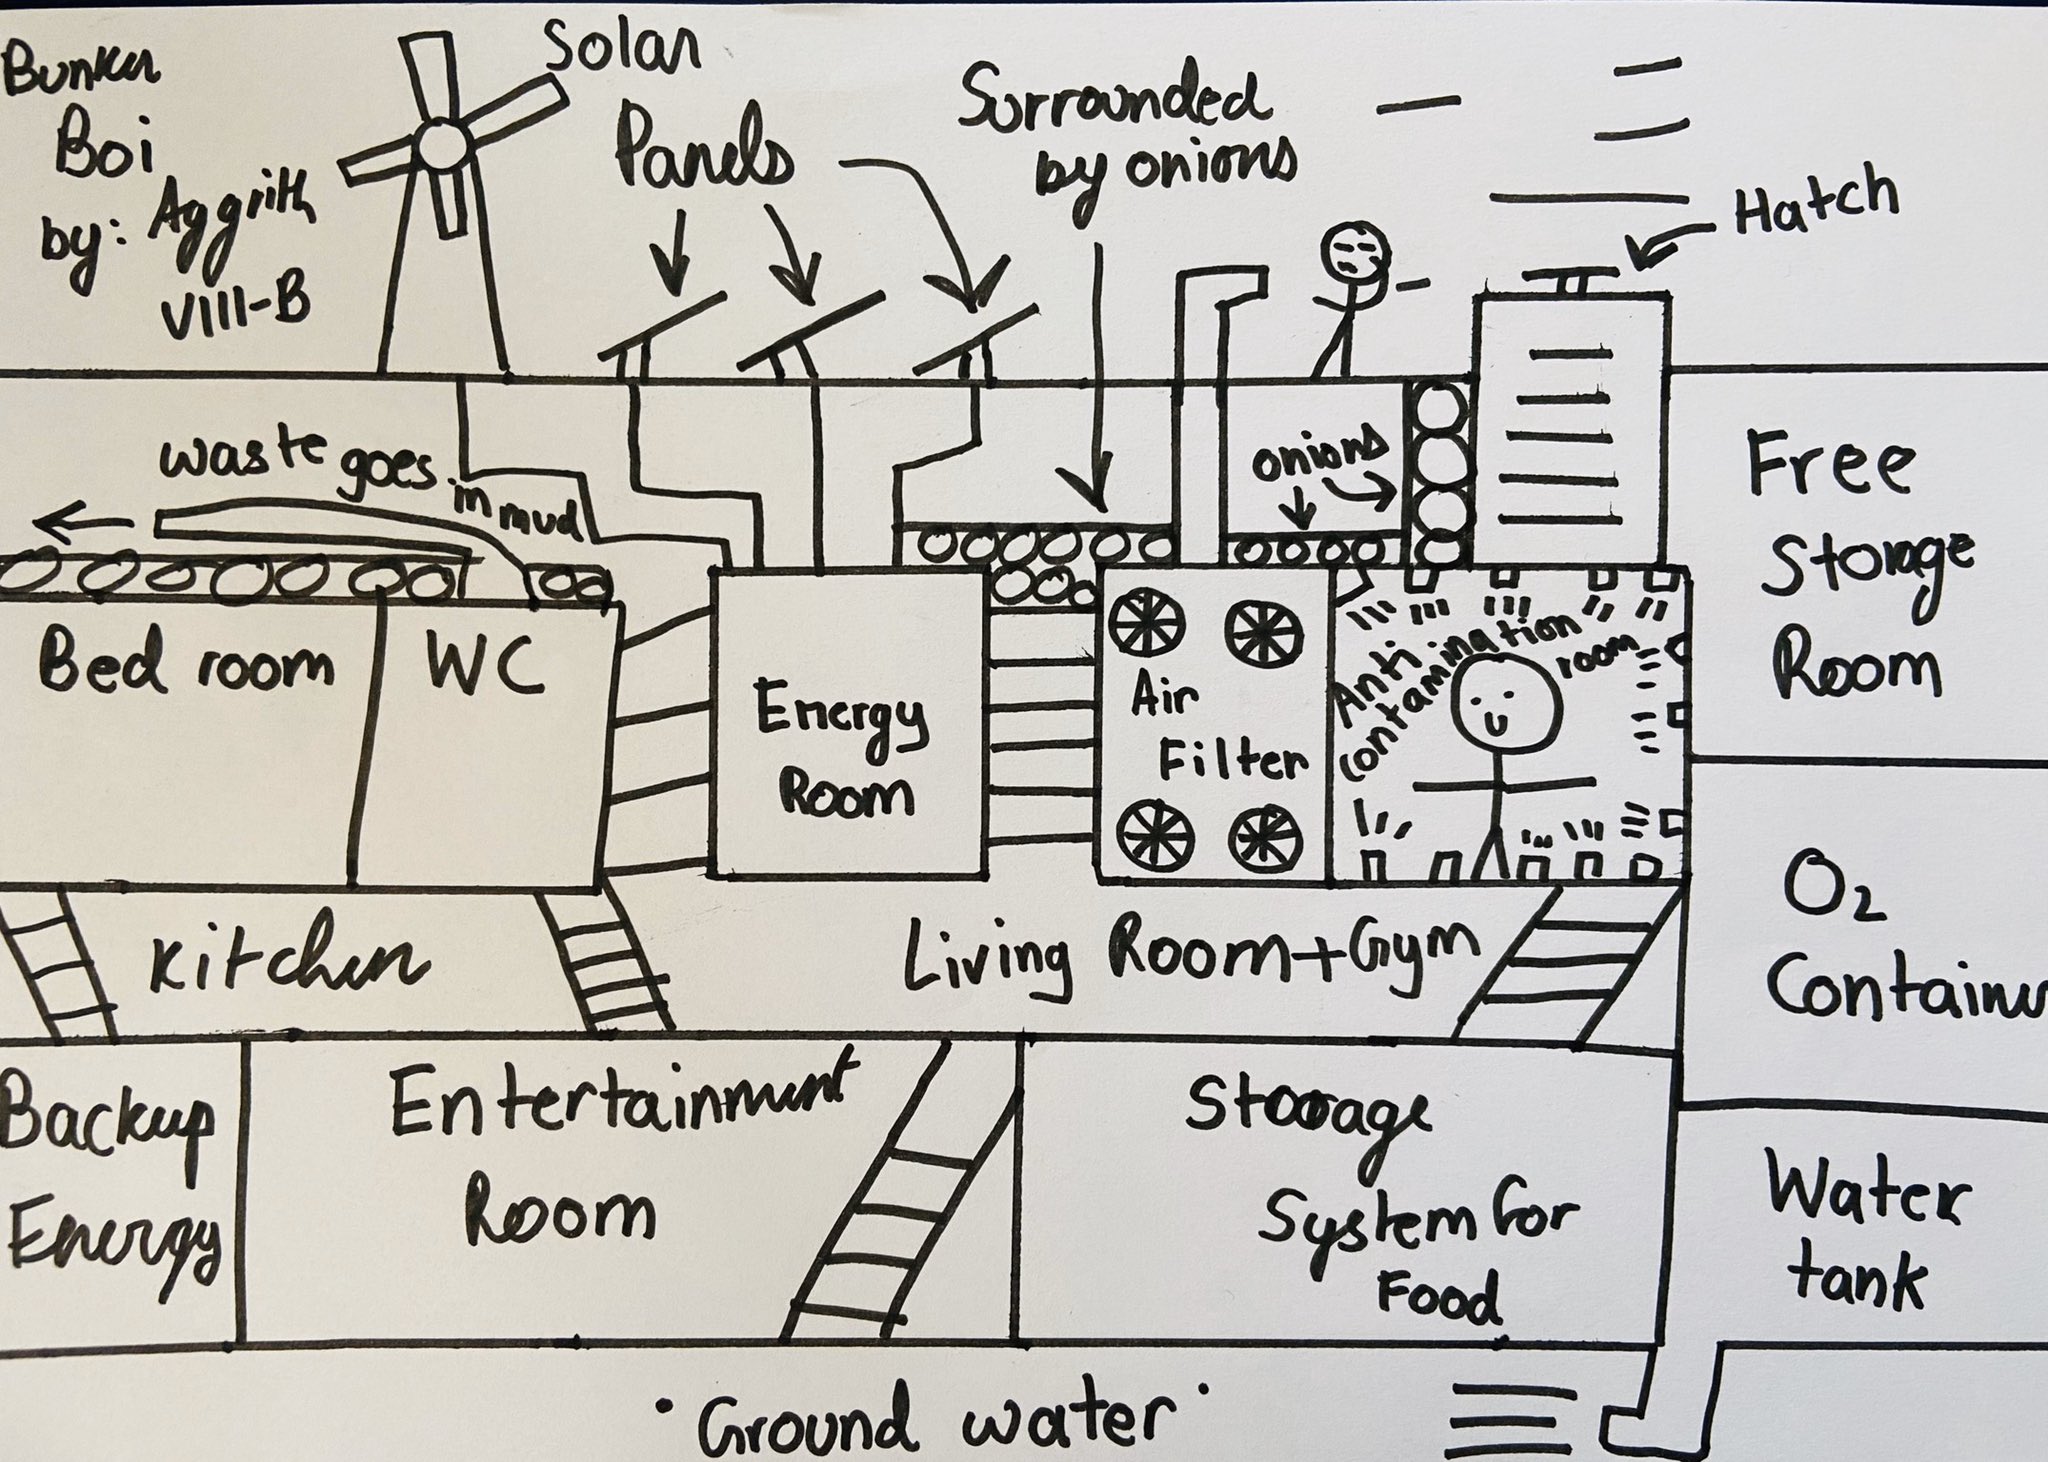 Bunker
Boi
by: Aggrith
VIII-B
Solar
Panels
Surrounded
by onions
Hatch
waste goes in mud
onions
Free
Storage
Room
Bed room
WC
Energy
Room
Air
Filter
Anti
contamination
room
O2
Container
Kitchen
Living Room+Gym
Backup
Energy
Entertainment
Room
Storage
System for
Food
Water
tank
Ground water